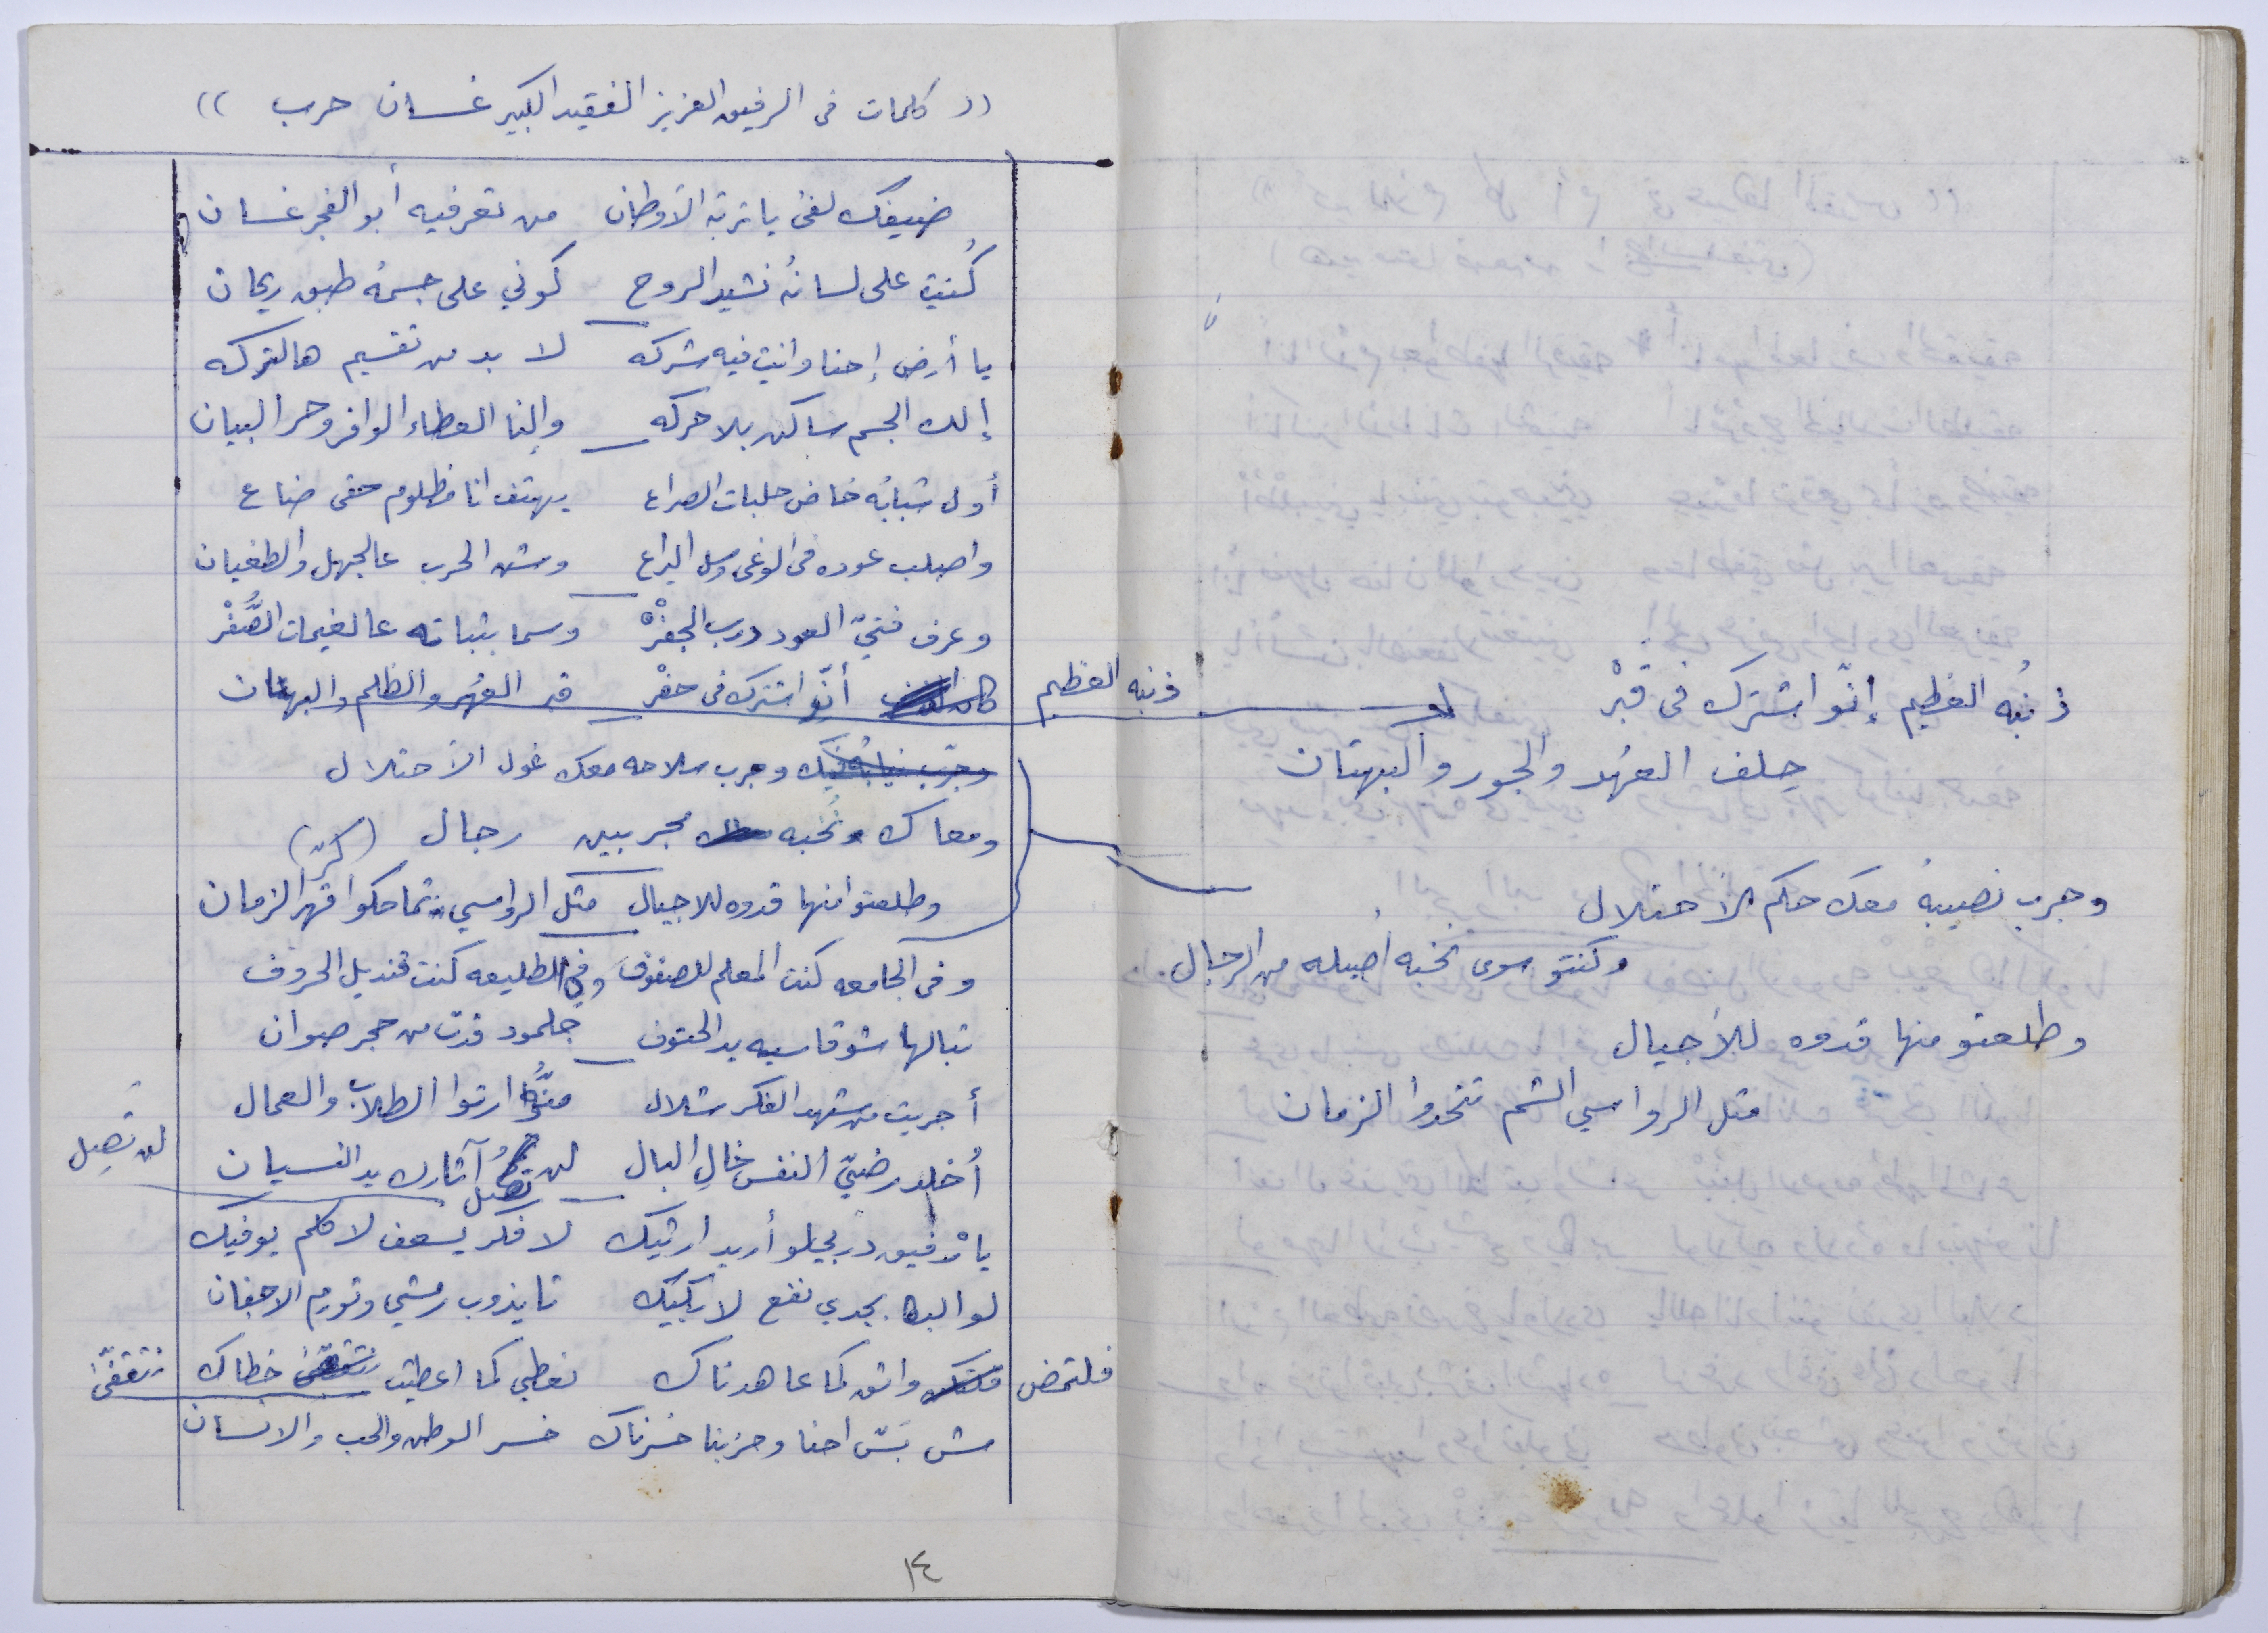 (( كلمات في الرفيق العزيز الفقيد الكبير غسان حرب ))
ضيفك لفى يا تربة الأوطان من تعرفيه أبو الفجر غسان
كُنتِ على لسانُه نشيد الروح كوني على جسمُه طبق ريحان
يا أرض إحنا وانتِ فيه شركه لا بد من تقسيم هالتركه
إلك الجسم ساكن بلا حركه وإلنا العطاء الوافر وحر البيان
أول شبابُه خاض حلبات الصراع يهتف انا مظلوم حقي ضاع
واصلب عوده في الوغى وسل اليراع وشن الحرب عالجهل والطغيان
وعرف فتيّ العود درب الجفْرْ وسما بثباته عالغيمات الصُّفْرْ
ذنبه العظيم أنّو اشترك في حفْر قبر القهر والظلم والبهتان
وجرب سلاحه معك غول الأحتلال
ومعاك نُخبه مجربين رجال (كرّ)
وطلعتو منها قدوه للاجيال مثل الرواسي تماحكوا قهر الزمان
وفي الجامعه كنت المعلم للصفوف وفي الطليعه كنت قنديل الحروف
تبالها شو قاسيه يد الحتوف جلمود قدت من حجر صوان
أجريت من شهد الفكر شلال منُّو ارتوا الطلاب والعمال
أُخلد رضيّ النفس خالِ البال لن تصل آثارك يد النسيان
لن تصِل
يا رفيق دربي لو أريد ارثيك لا فكر يسعف لا كلم يوفيك
لو البكا يجدي نفع لابكيك تا يذوب رمشي وتورم الاجفان
فلتمض واثق كما عاهدناك نعطي كما اعطيت نتقفّى خطاك
نتقفّى
مش بسّ احنا وحزبنا خسرناك خسر الوطن والحب والانسان
١٤
ذنبه العظيم
ذنبُه العظيم إنّو اشترك في قبْرْ
حِلف القهر والجور والبهتان
وجرب نصيبهُ معك حكم الأحتلال
وكنتو سوى نخبه أصيله من الرجال
وطلعتو منها قدوه للأجيال
مثل الرواسي الشم تتحدوا الزمان